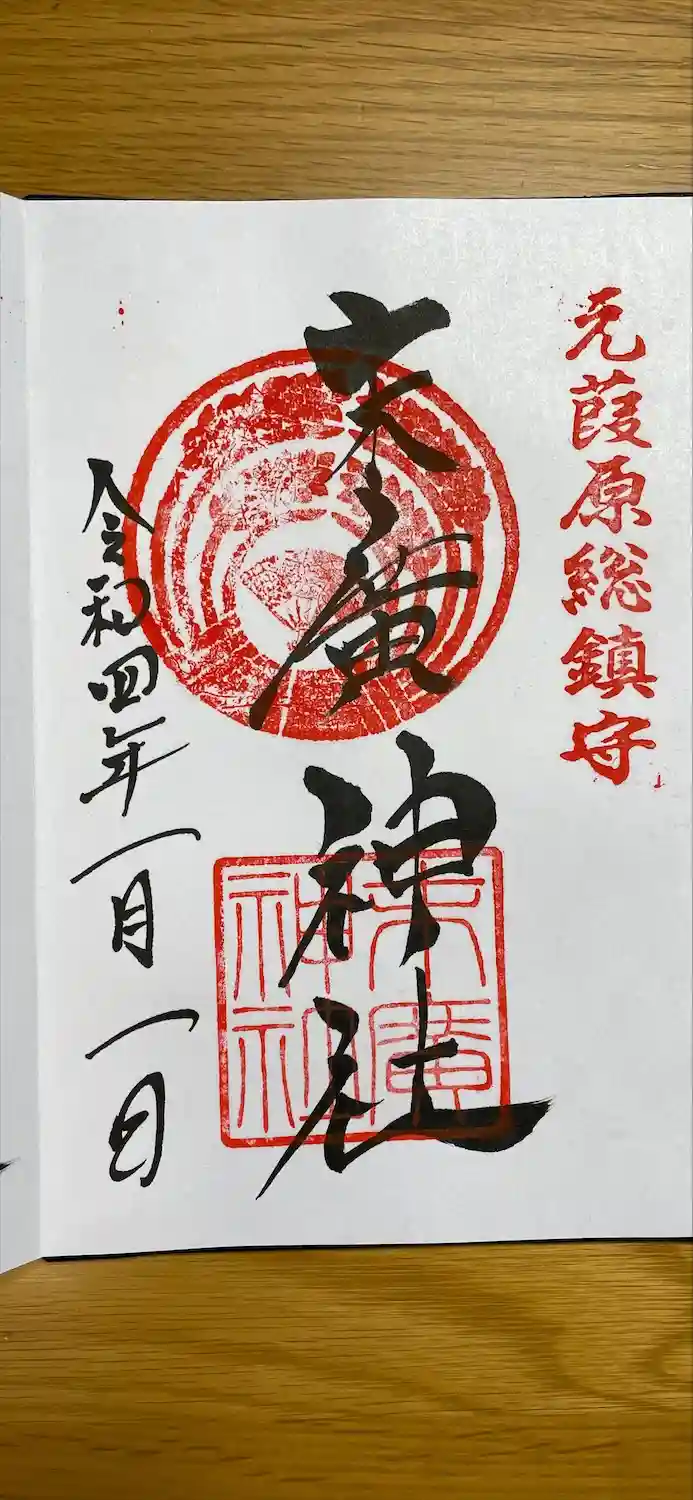 元葭原総鎮守
末廣神社
末廣
神社
令和四年一月一日